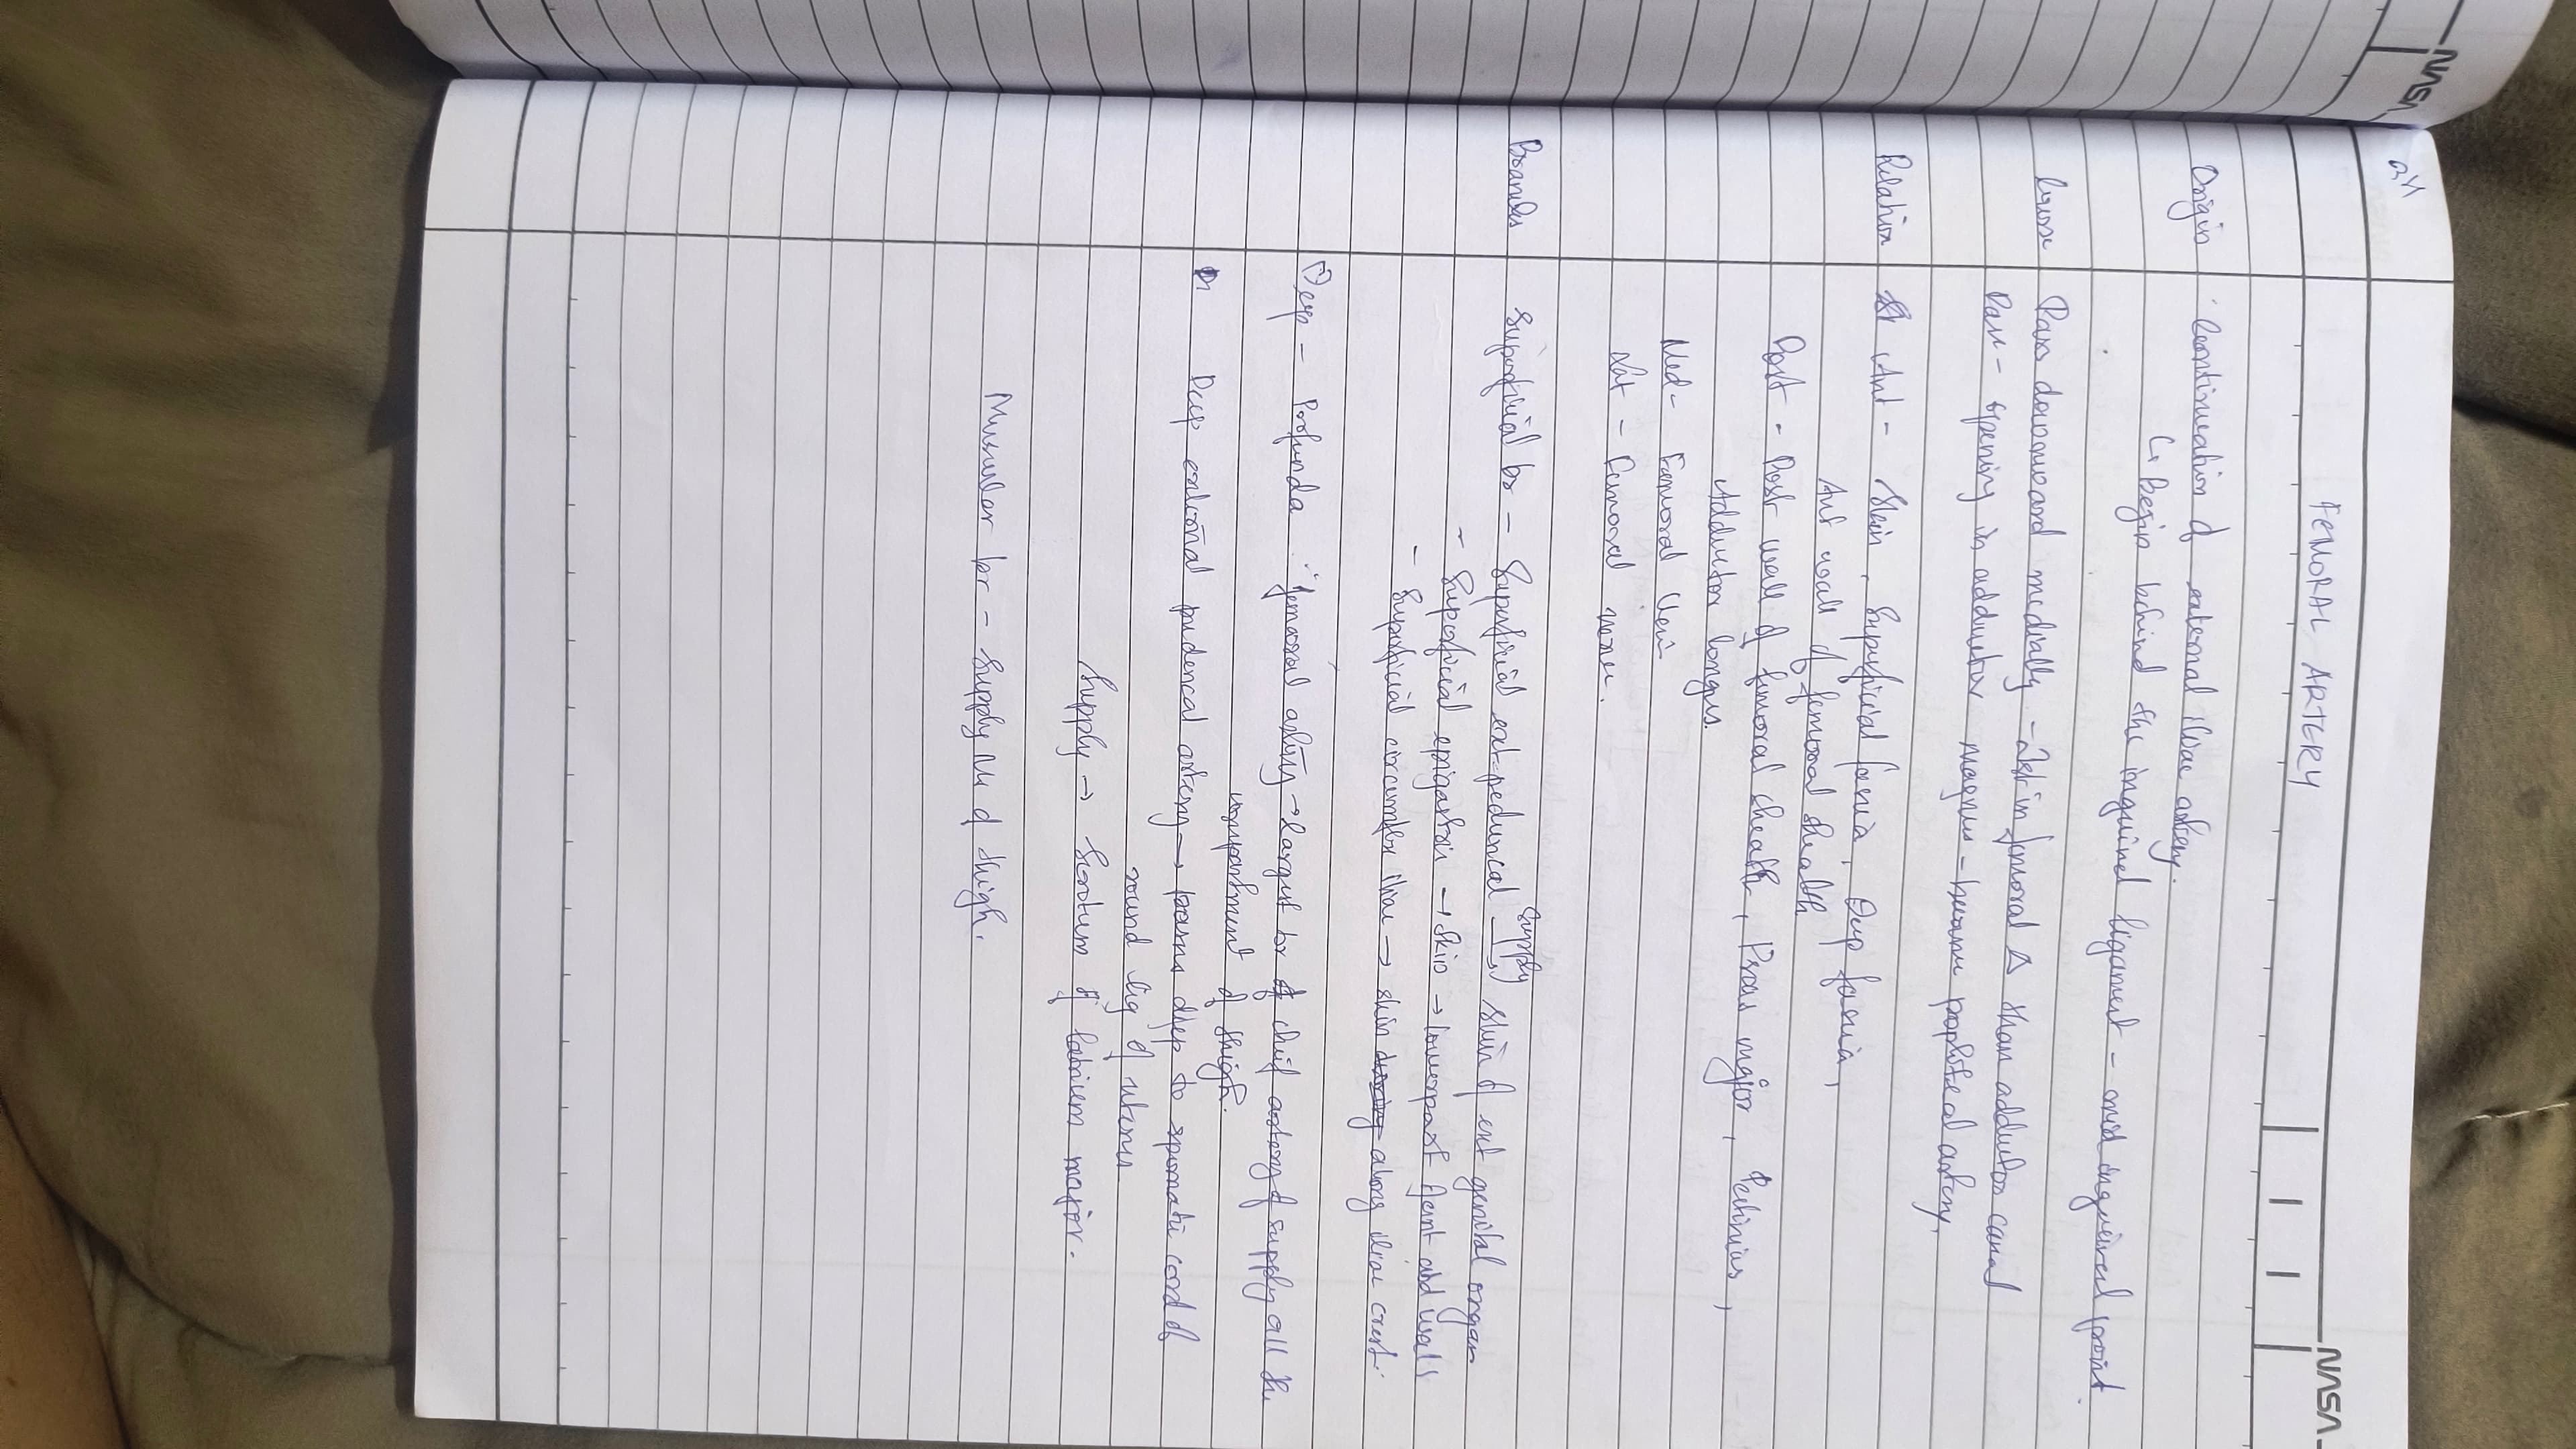 NASA
FEMORAL ARTERY
NASA
Origin . Continuation of external iliac artery.
↳ Begin behind the inguinal ligament - mid inguinal point.
Course Pass downward medially - 1st in femoral Δ than adductor canal
Pass - opening in adductor magnus - become popliteal artery,
Relation Ant - Skin, Superficial fascia, Deep fascia,
Ant wall of femoral sheath
Post - Post wall of femoral sheath, Psoas major, Pectinius,
Adductor longus.
Med - Femoral Vein
Lat - Femoral nerve.
supply
Branches Superficial br - Superficial ext peduncal → skin of ext genital organ
- Superficial epigastric → skin → lower part of ant abd wall
- Superficial circumflex iliac → skin along iliac crest.
Deep - Profunda femoral artery → largest br of chief artery of supply all the
compartment of thigh.
Deep external pudencal artery → passes deep to spermatic cord of
round lig of uterus
Supply → Scrotum of labrium major.
Muscular br - Supply M of thigh.